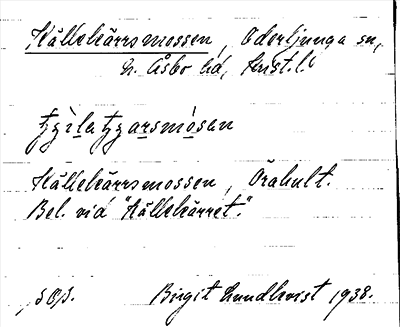 Källekärrsmossen, Oderljunga sn,
N. Åsbo hd, Krist. l.
Källekärrsmossen, Örahult.
Bel. vid "Källekärret."
Birgit Lundkvist 1938.